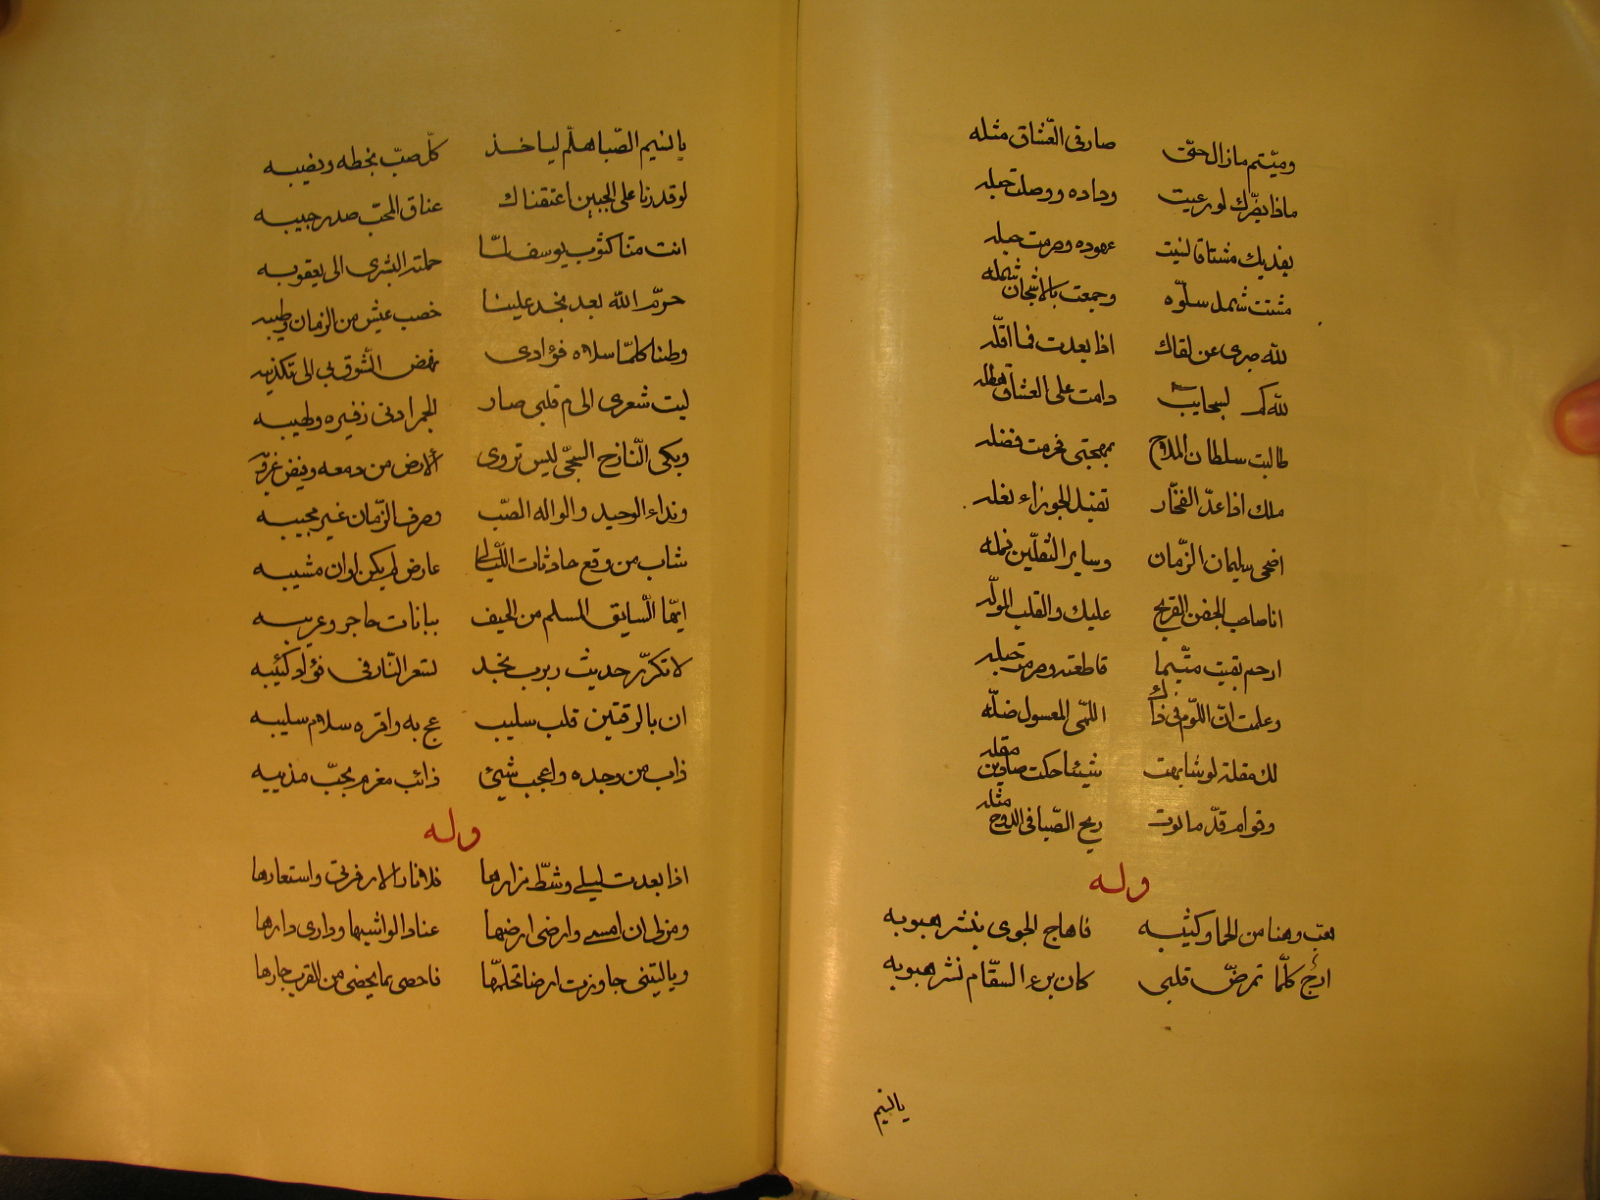 ومتيم مازال حتى صار في العشاق مثله
ماذا يضرك لو رعيت وداده ووصلت حبله
يفديك مشتاقا نسيت عهوده وصرمت حبله
شتت شمل سلوه وجمعت بالاشجان شمله
لله صبري عن لقاك اذا بعدت فما اقله
لله كم لسحايب دامت على العشاق هطله
طالبت سلطان الملاح بمهجتي فحرمت فضله
ملك اذا عد الفخار تقبل الجوزاء نعله
اضحى سليمان الزمان وساير الثقلين نمله
انا صاحب الجفن القريح عليك والقلب الموله
ارحم بقيت متيما قاطعته وصرمت حبله
وعلمت ان اللوم في ذاك اللمى المعسول ضله
لك مقلة لو شابهت شيئا حكت صادين مقله
وقوام قد ما لوت ريح الصبا في الدوح مثله
وله
هب وهنا من الحما وكثيبه فاهاج الجوى بنشر هبوبه
ارج كلما تمرض قلبي كان برء السقام نشر هبوبه
يا نسيم
يا نسيم الصبا هلم لياخذ كل صب بخطه ونصيبه
لو قدرنا على الجبين اعتقناك عناق المحب صدر حبيبه
انت منا كثوب يوسف لما حملته البشرى الى يعقوبه
حرم الله بعد نجد علينا خصب عيش من الزمان وطيبه
وطنا كلما سلاه فؤادي نهض الشوق بي الى تكذيبه
ليت شعري الى م قلبي صار الجمر ادنى زفيره ولهيبه
وبكى النازح الشجي ليس تروى الارض من دمعه وفيض غروبه
ونداء الوحيد والواله الصب وصرف الزمان غير مجيبه
شاب من وقع حادثات الليالي عارض لم يكن اوان مشيبه
ايها السايق المسلم من الخيف ببانات حاجر وعريبه
لا تكرر حديث ربرب نجد تسعر النار في فؤاد كئيبه
ان بالرقتين قلب سليب عج به واقره سلام سليبه
ذاب من وجده واعجب شيئ ذائب مغرم بحب مذيبه
وله
اذا بعدت ليلى وشط مزارها فلا فاد الا زفرتي واستعارها
ومن لي ان امسي وارضي ارضها عناد الواشيها وداري دارها
ويا ليتني جاوزت ارضا تحلها فاحصى بما يحضى من القرب جارها